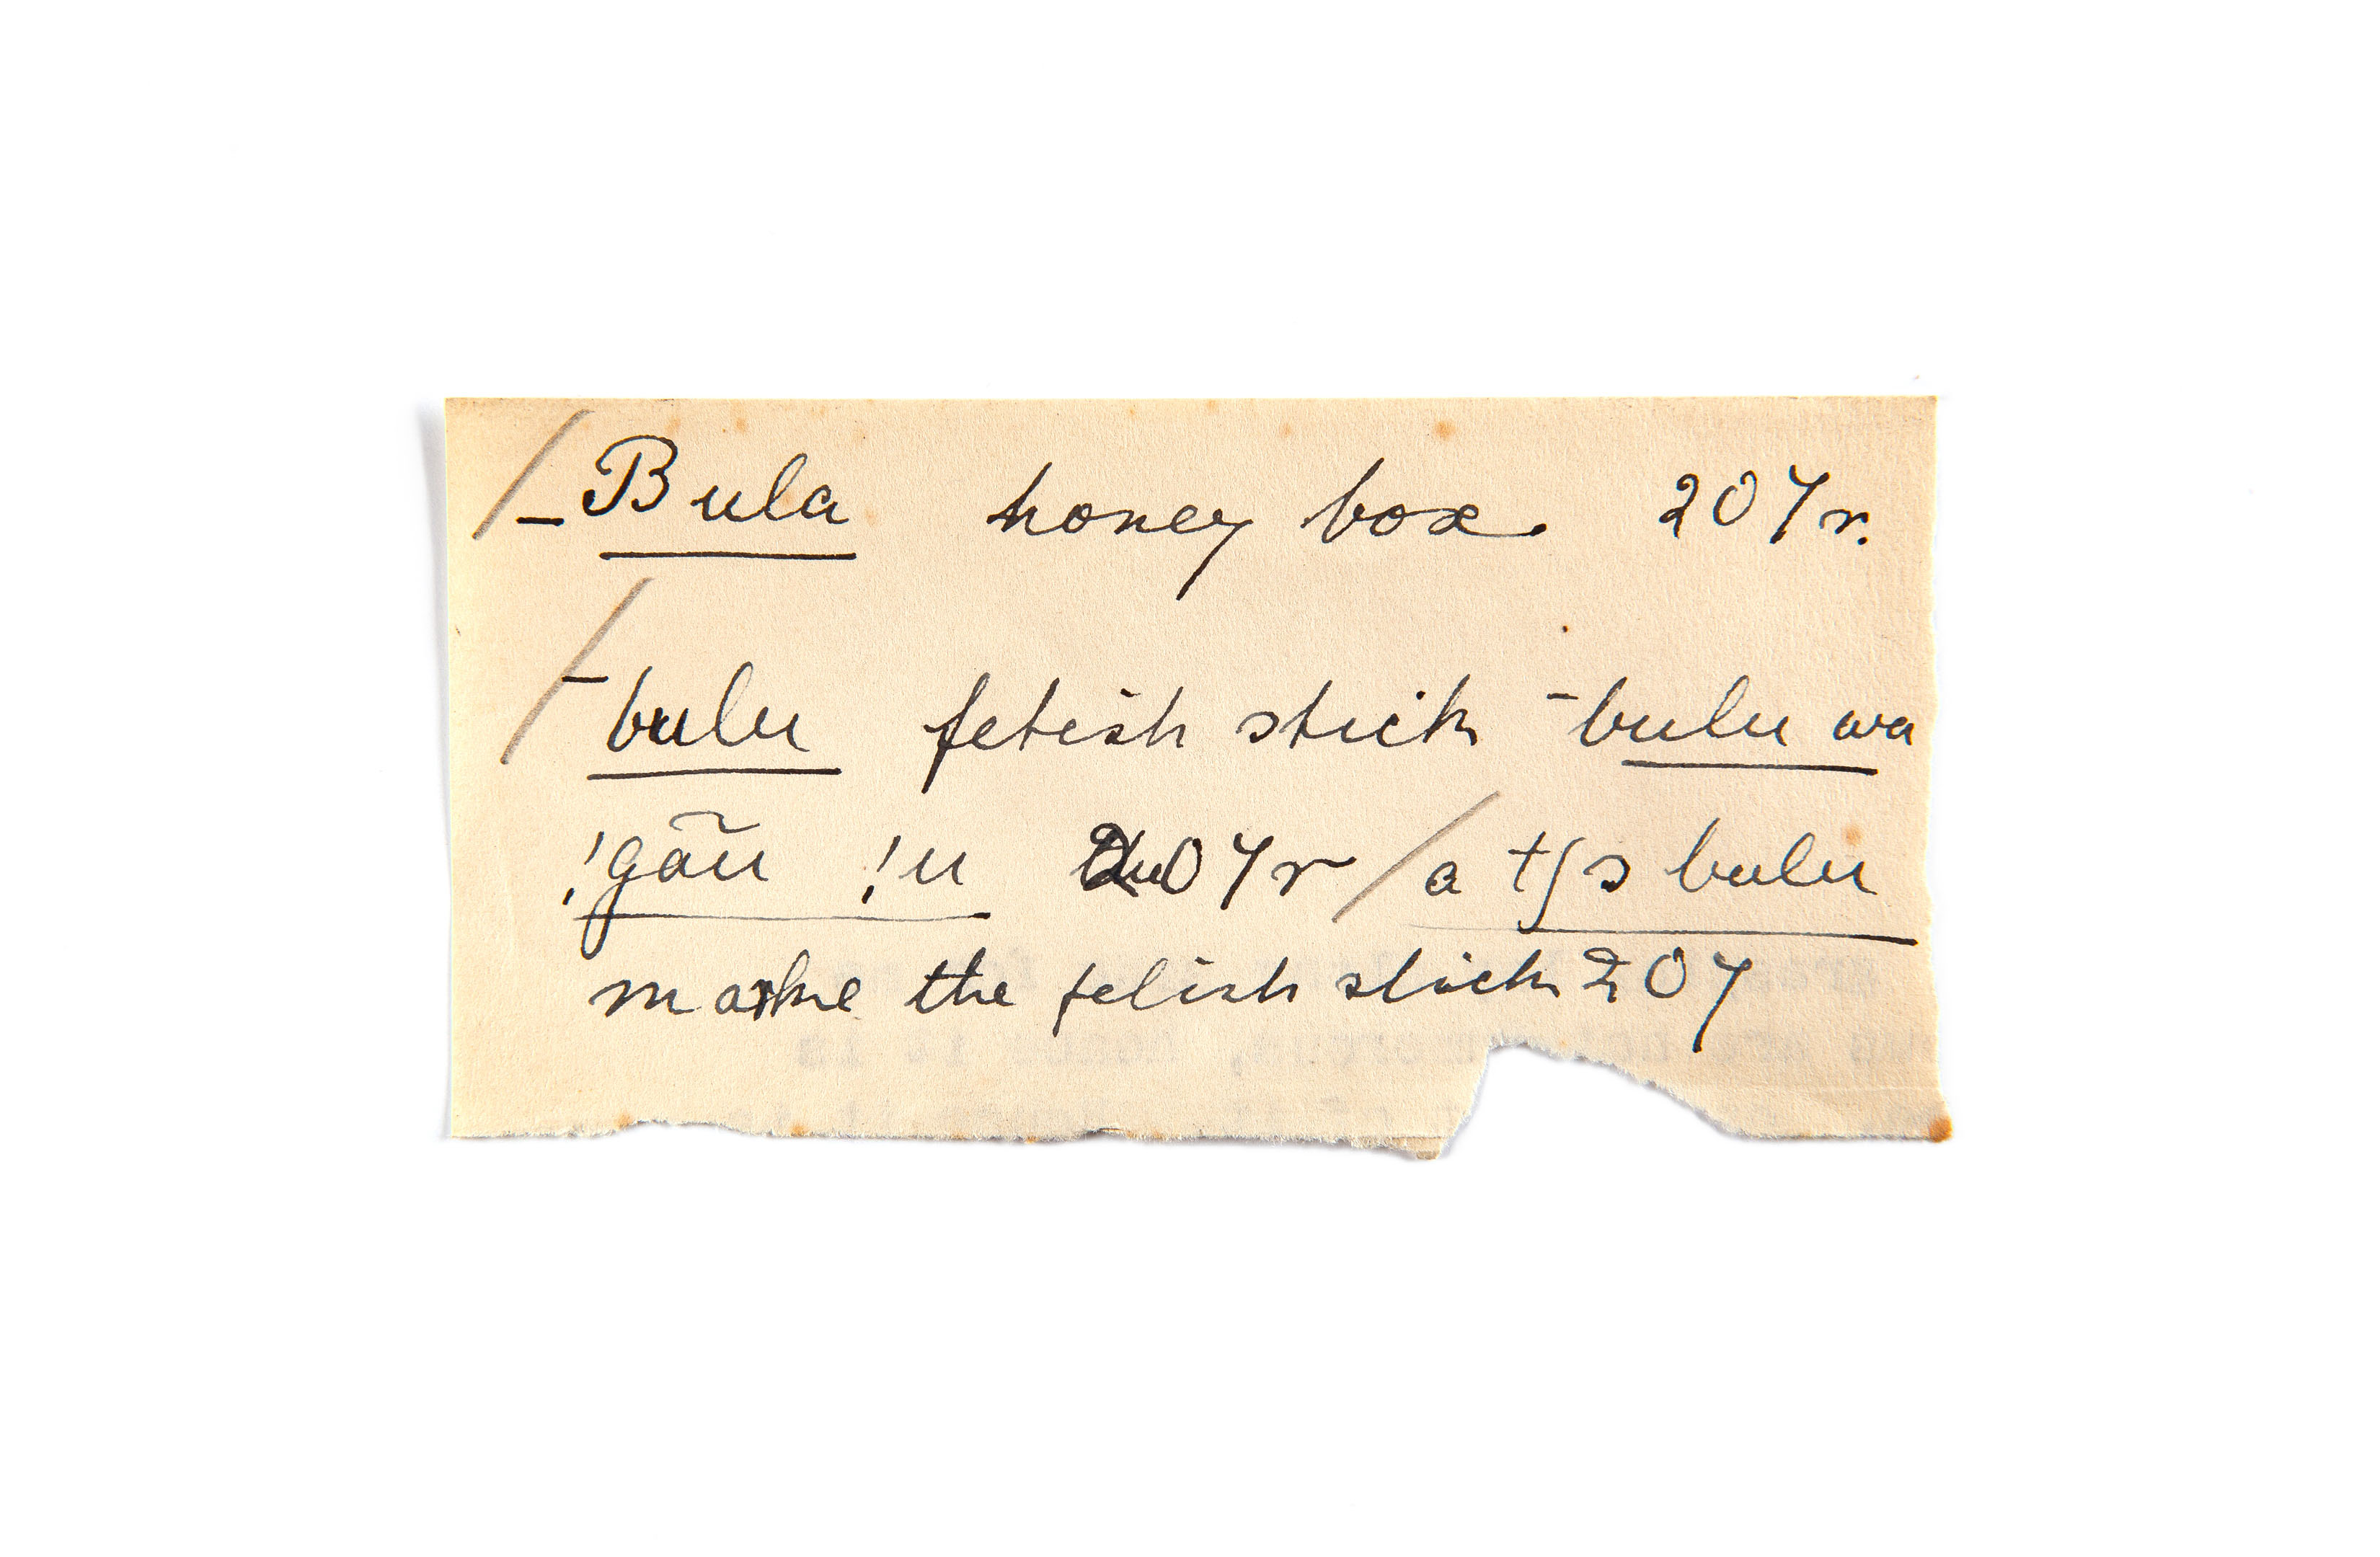 _Bula honey box. 207r.
‾bulu fetish stick ‾bulu wa
!gãu !u 207r / a tʃs bulu
make the fetish stick 207